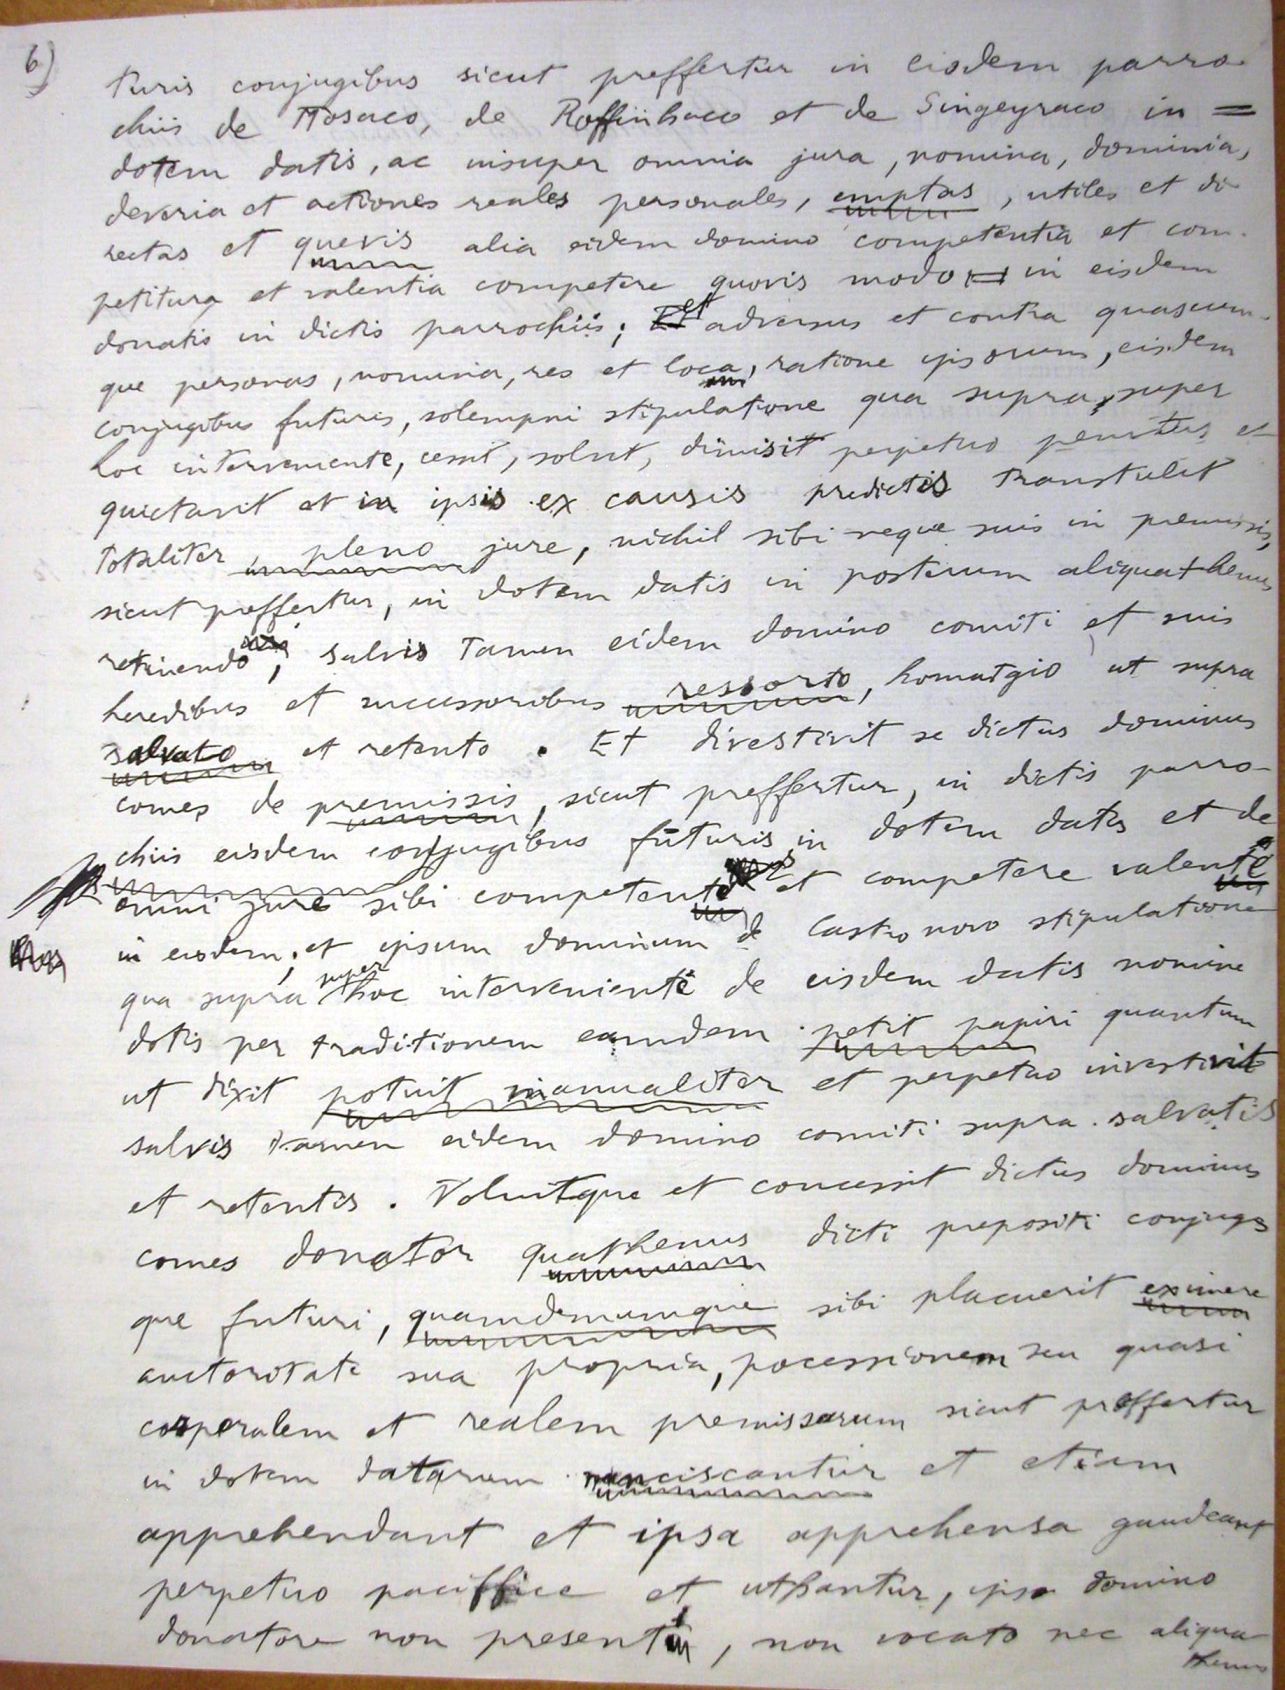 6)
turis conjugibus sicut preffertur in eisdem parro-
chiis de Rosaco, de Roffinhaco et de Singeyraco in =
dotem datis, ac insuper omnia jura, nomina, dominia,
deveria et actiones reales personales, emptas, utiles et di-
rectas et quevis alia eidem domino competentia et com-
petitura et valentia competere quovis modo in eisdem
donatis in dictis parrochiis; et adversus et contra quascum-
que personas, nomina, res et loca, ratione ipsorum, eisdem
conjugibus futuris, solempni stipulatione qua supra, super
hoc interveniente, cessit, solvit, dimisit perpetuo penitus et
quictavit et in ipsis ex causis predictis transtulit
totaliter, pleno jure, nichil sibi neque suis in premissis,
sicut preffertur, in dotem datis in posterum aliquathenus
retinendo, salvis tamen eidem domino comiti et suis
heredibus et successoribus ressorto, homatgio ut supra
salvato et retento. Et divestivit se dictus dominus
comes de premissis, sicut preffertur, in dictis parro-
chiis eisdem conjugibus futuris in dotem datis et de
omni jure sibi competente et competere valente
in eisdem, et ipsum dominum de Castro novo stipulatione
qua supra super hoc interveniente de eisdem datis nomine
dotis per traditionem eamdem petit papiri quantum
ut dixit potuit manualiter et perpetuo investivit
salvis tamen eidem domino comiti supra salvatis
et retentis. Voluitque et concessit dictus dominus
comes donator quathenus dicti prepositi conjuges
que futuri, quamdemumque sibi placuerit eximere
auctoritate sua propria, pocessionem seu quasi
corporalem et realem premissorum sicut preffertur
in dotem datarum nanciscantur et etiam
apprehendant et ipsa apprehensa gaudeant
perpetuo paciffice et uthantur, ipso domino
donatore non presente, non vocato nec aliqua-
thenus